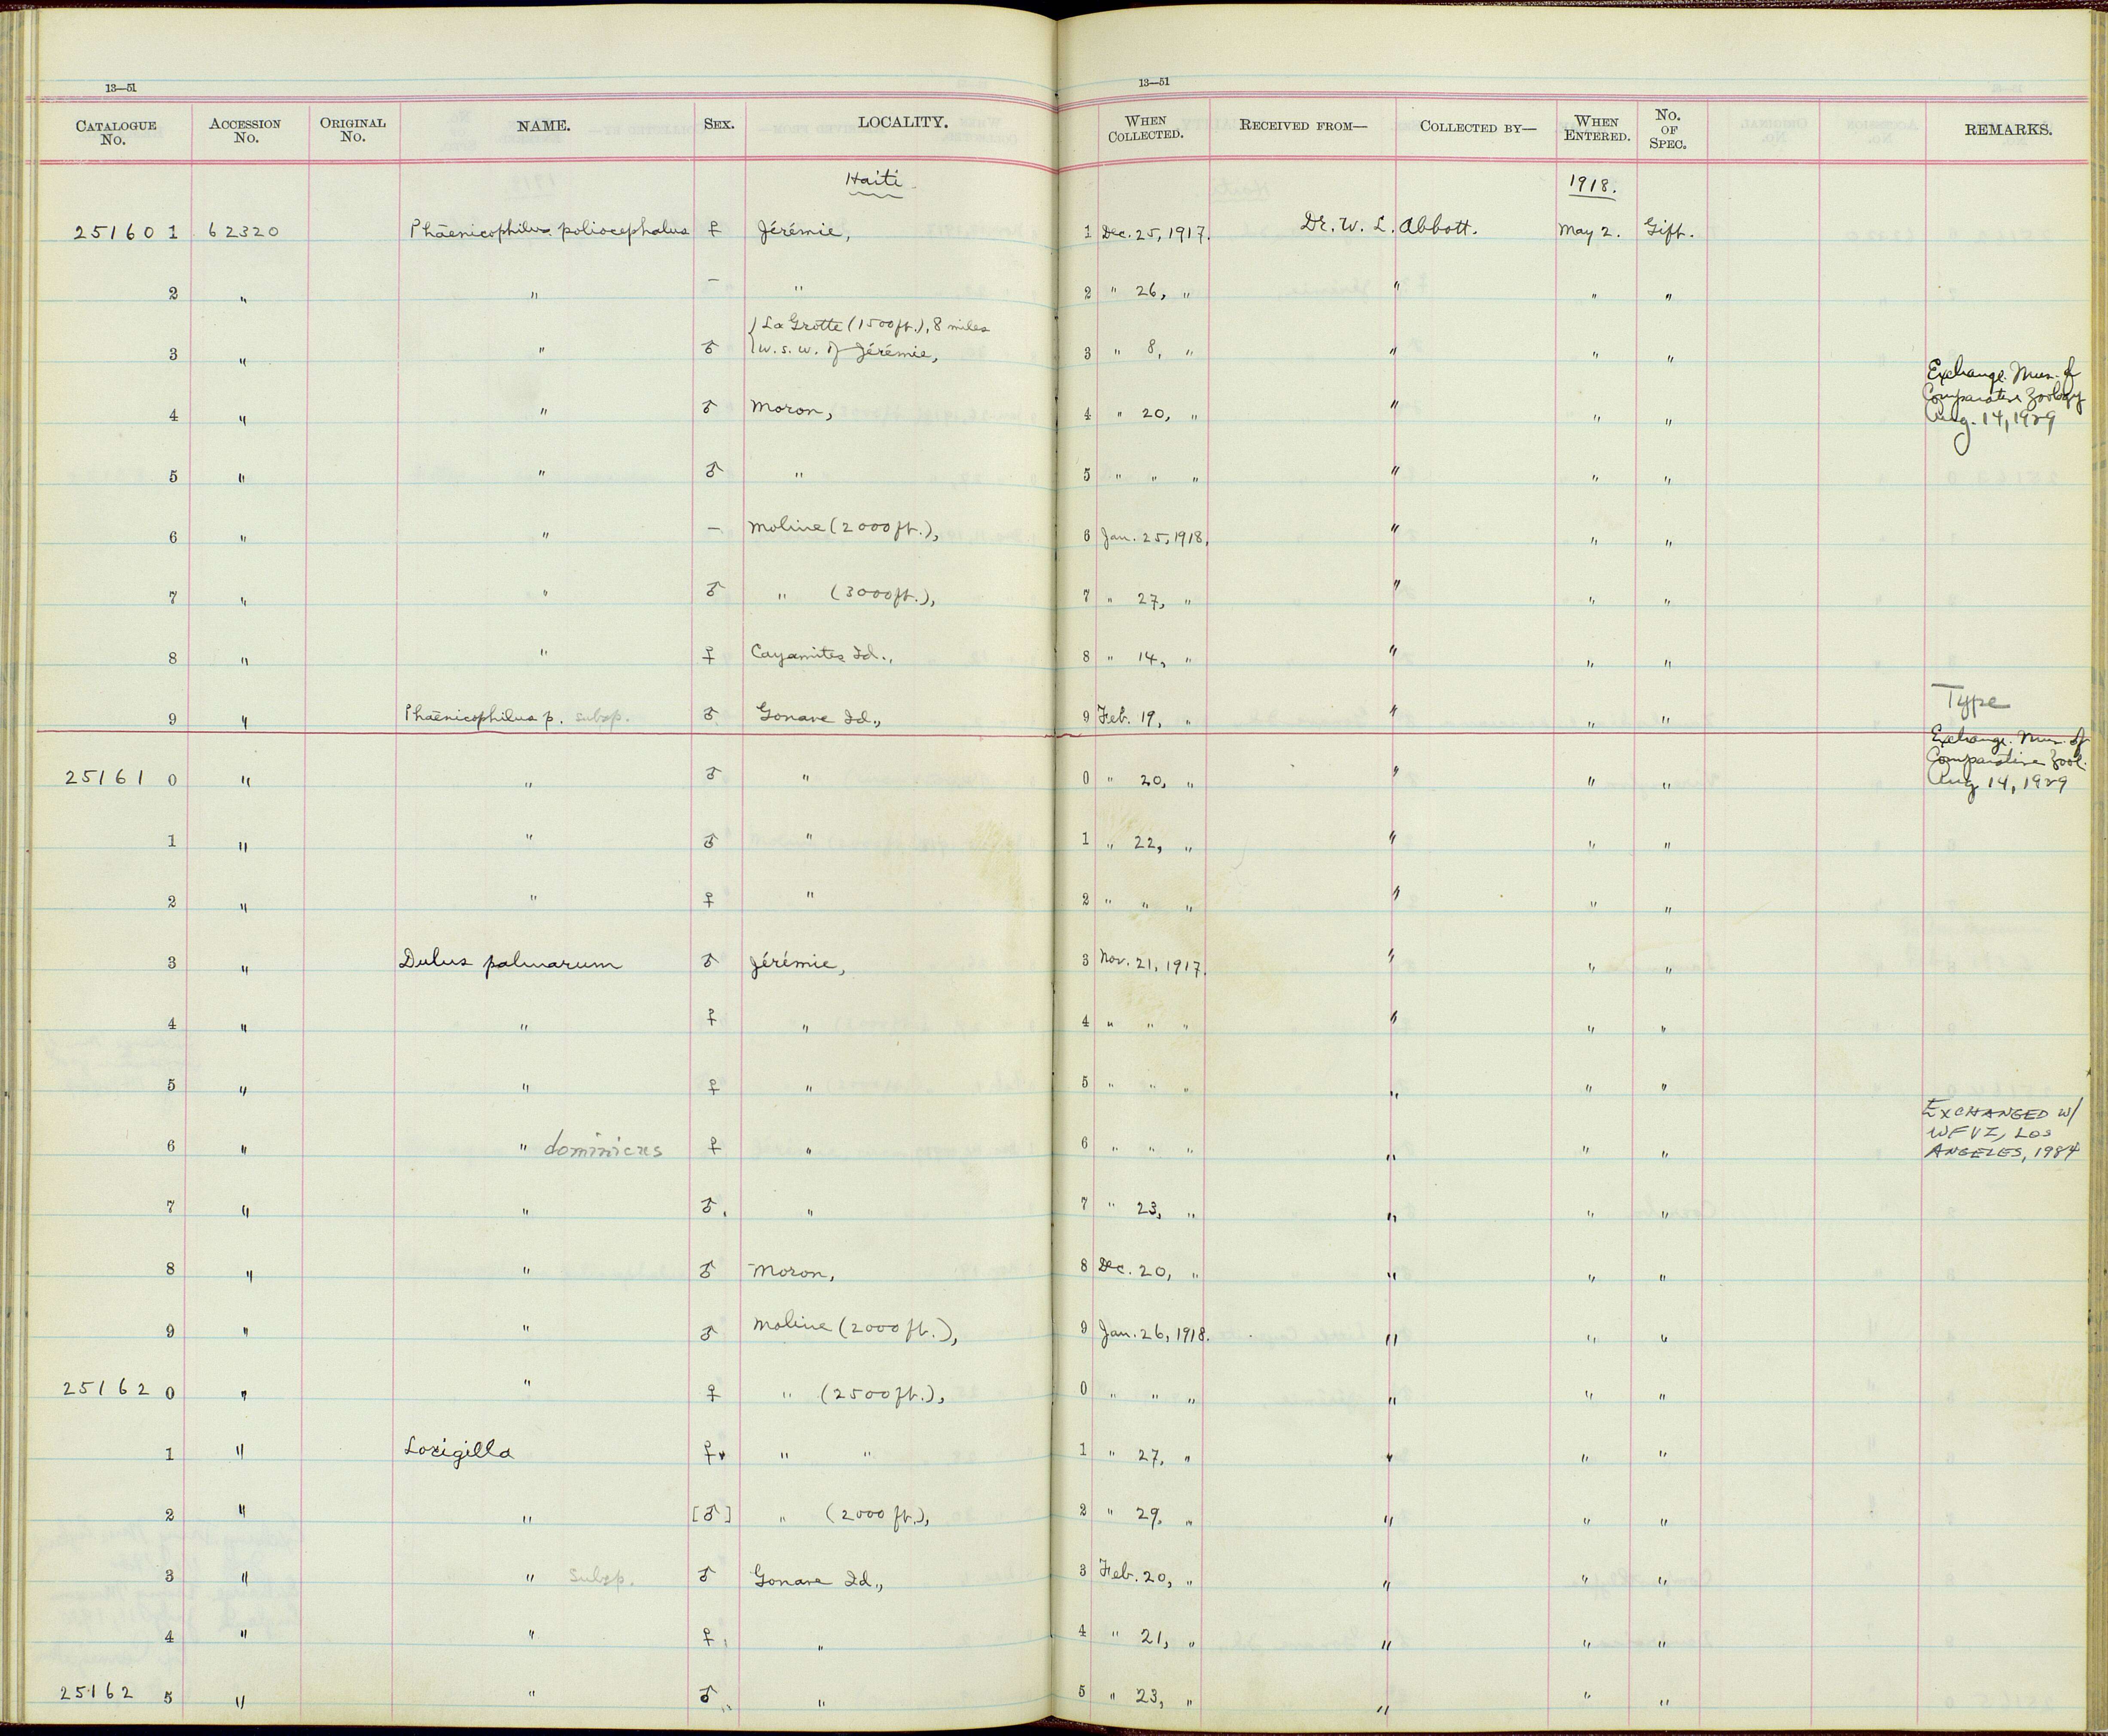 13—51 13—51
CATALOGUE No. ACCESSION No. ORIGINAL No. NAME. SEX. LOCALITY. WHEN COLLECTED. RECEIVED FROM— COLLECTED BY— WHEN ENTERED. No. OF SPEC. REMARKS.
Haiti 1918.
251601 62320 Phaenicophilus poliocephalus ♀ Jérémie, 1 Dec. 25, 1917. Dr. W. L. Abbott. May 2. Gift.
2 " " — " 2 " 26, " " " "
{La Grotte (1500 ft.), 8 miles
3 " " ♂ {W. S. W. of Jérémie, 3 " 8, " " " "
4 " " ♂ Moron, 4 " 20, " " " " Exchange. Mus. of
Comparative Zoology
Aug. 14, 1929
5 " " ♂ " 5 " " " " " "
6 " " — Moline (2000 ft.), 6 Jan. 25, 1918. " " "
7 " " ♂ " (3000 ft.), 7 " 27, " " " "
8 " " ♀ Cayamites Id., 8 " 14, " " " "
9 " Phaenicophilus p. subsp. ♂ Gonave Id., 9 Feb. 19, " " " " Type
251610 " " ♂ " 0 " 20, " " " " Exchange. Mus. of
Comparative Zool.
Aug 14, 1929
1 " " ♂ " 1 " 22, " " " "
2 " " ♀ " 2 " " " " " "
3 " Dulus palmarum ♂ Jérémie, 3 Nov. 21, 1917. " " "
4 " " ♀ " 4 " " " " " "
5 " " ♀ " 5 " " " " " "
6 " " dominicus ♀ " 6 " " " " " " EXCHANGED W/
WFVZ, LOS
ANGELES, 1984
7 " " ♂. " 7 " 23, " " " "
8 " " ♂ Moron, 8 Dec. 20, " " " "
9 " " ♂ Moline (2000 ft.), 9 Jan. 26, 1918. " " "
251620 " " ♀ " (2500 ft.), 0 " " " " " "
1 " Loxigilla ♀ " " 1 " 27, " " " "
2 " " [♂] " (2000 ft.), 2 " 29, " " " "
3 " " subsp. ♂ Gonave Id., 3 Feb. 20, " " " "
4 " " ♀ " 4 " 21, " " " "
251625 " " ♂ " 5 " 23, " " " "